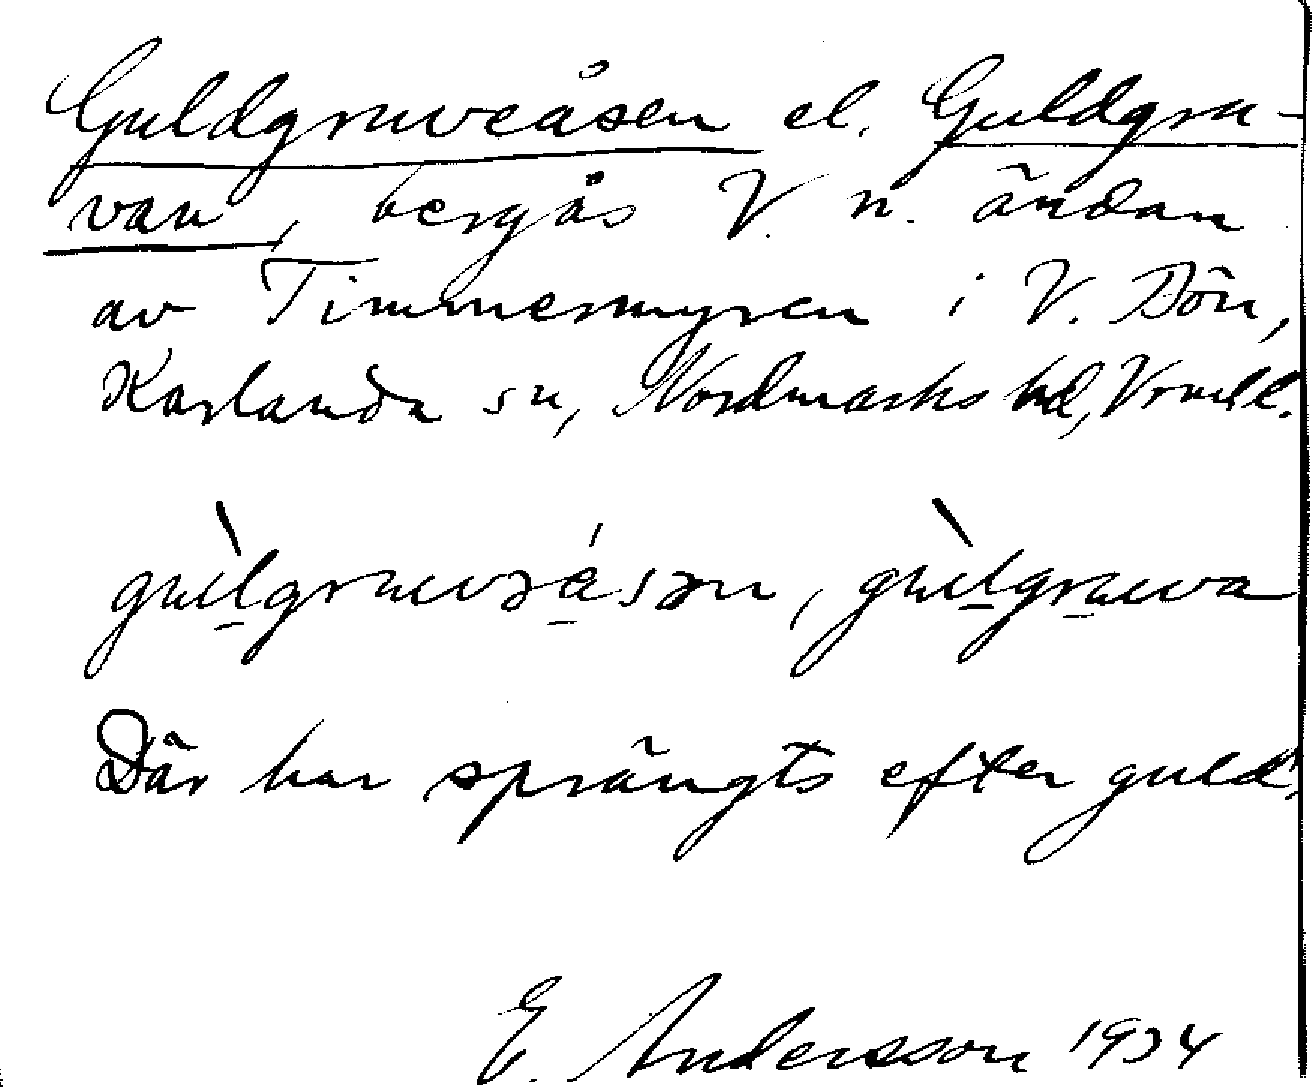 Guldgruveåsen el. Guldgru-
van, bergås V. n. ändan
av Timmermyren i V. Bön,
Karlanda sn, Nordmarks hd, Vrmll.
gu̇lgruvəásən, gu̇lgruva
Där har sprängts efter guld.
E. Andersson 1934